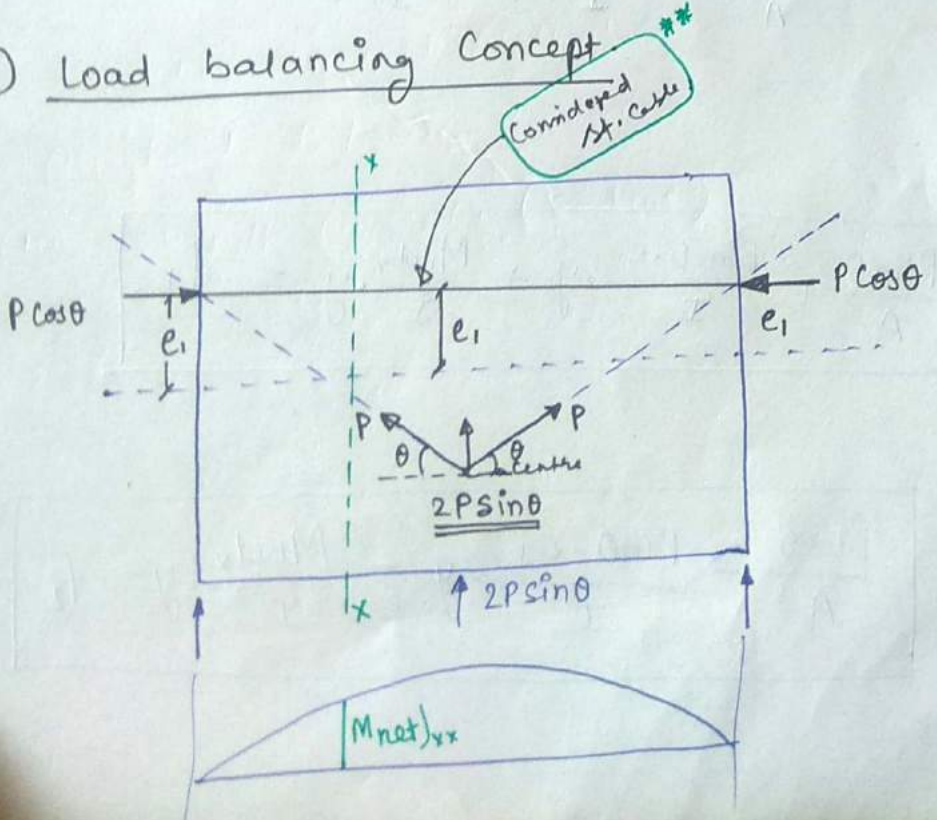 ) Load balancing Concept
**
Considered
st. Cable
x
P cosθ
P cosθ
e₁
e₁
e₁
P
P
θ
θ
Centre
2P Sinθ
2P Sinθ
x
Mnet)xx